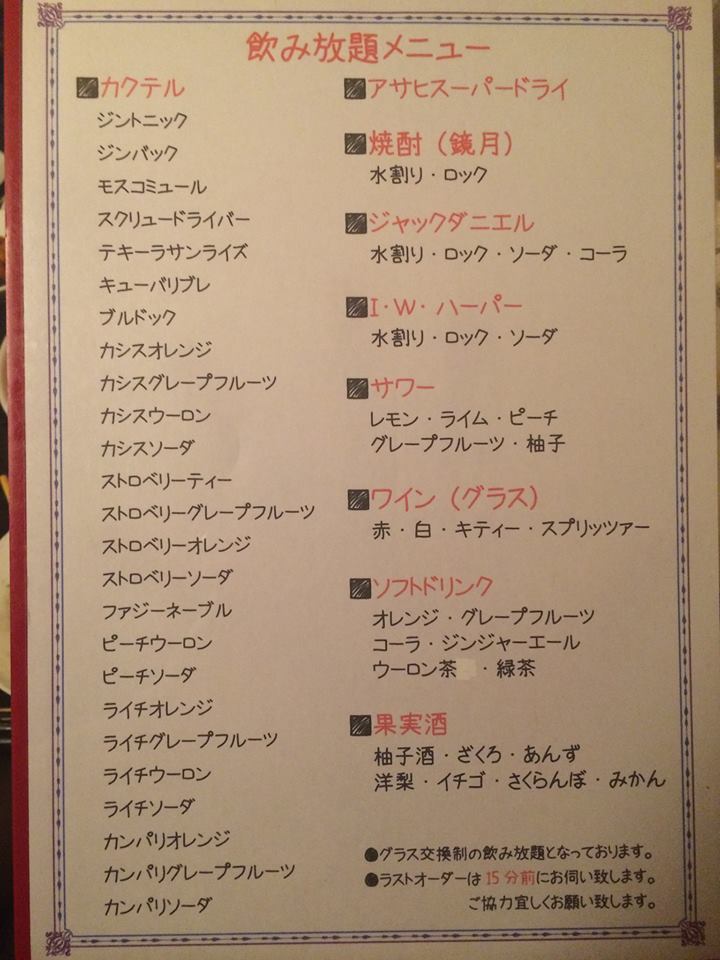 飲み放題メニュー
カクテル
ジントニック
ジンバック
モスコミュール
スクリュードライバー
テキーラサンライズ
キューバリブレ
ブルドック
カシスオレンジ
カシスグレープフルーツ
カシスウーロン
カシスソーダ
ストロベリーティー
ストロベリーグレープフルーツ
ストロベリーオレンジ
ストロベリーソーダ
ファジーネーブル
ピーチウーロン
ピーチソーダ
ライチオレンジ
ライチグレープフルーツ
ライチウーロン
ライチソーダ
カンパリオレンジ
カンパリグレープフルーツ
カンパリソーダ
アサヒスーパードライ
焼酎（鏡月）
水割り・ロック
ジャックダニエル
水割り・ロック・ソーダ・コーラ
I・W・ハーパー
水割り・ロック・ソーダ
サワー
レモン・ライム・ピーチ
グレープフルーツ・柚子
ワイン（グラス）
赤・白・キティー・スプリッツァー
ソフトドリンク
オレンジ・グレープフルーツ
コーラ・ジンジャーエール
ウーロン茶・緑茶
果実酒
柚子酒・ざくろ・あんず
洋梨・イチゴ・さくらんぼ・みかん
●グラス交換制の飲み放題となっております。
●ラストオーダーは15分前にお伺い致します。
ご協力宜しくお願い致します。